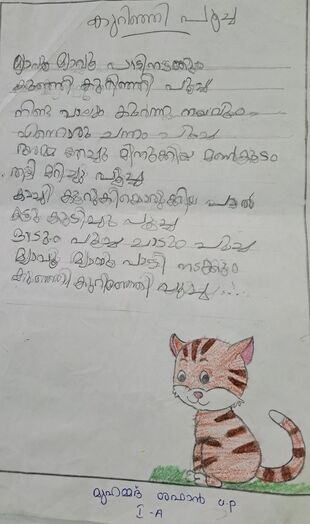 കുറിഞ്ഞി പൂച്ച
മ്യാവൂ മ്യാവൂ പാടിനടക്കും
കുഞ്ഞി കുറിഞ്ഞി പൂച്ച
നിണ്ട വാലും കൂർത്ത നഖവും
എന്തൊരു ചന്തം പൂച്ച
അമ്മ തേച്ചു മിനുക്കിയ മൺകുടം
തട്ടി മറിച്ചു പൂച്ച
കാച്ചി കുറുക്കിയൊരുക്കിയ പാൽ
കട്ടു കുടിച്ചു പൂച്ച
ഓടും പൂച്ച ചാടും പൂച്ച
മ്യാവൂ മ്യാവൂ പാട്ടി നടക്കും
കുഞ്ഞി കുറിഞ്ഞി പൂച്ച....
മുഹമ്മദ് ശഫാൻ u.p
I -A